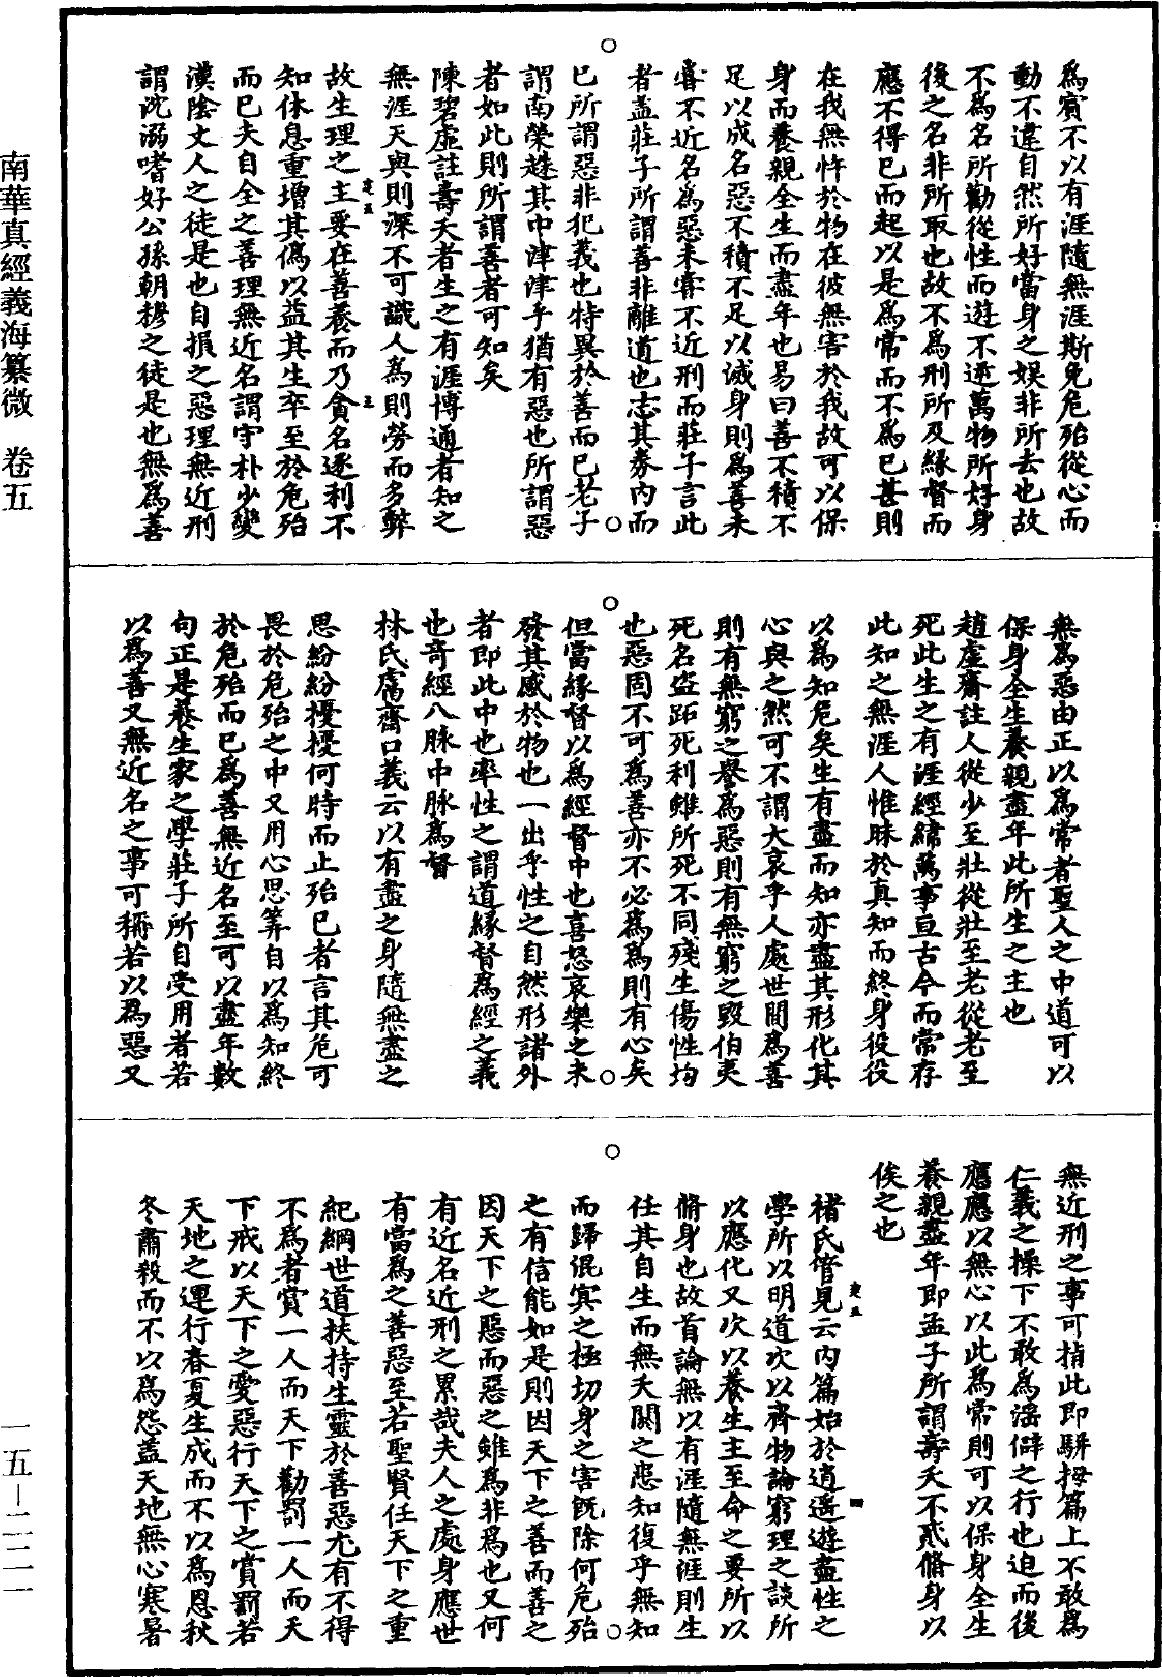 南華真經義海纂微　卷五
一五－二二一
為賓不以有涯隨無涯斯免危殆從心而
動不違自然所好當身之娛非所去也故
不為名所勸從性而遊不逆萬物所好身
後之名非所取也故不為刑所及緣督而
應不得已而起以是為常而不為已甚則
在我無忤於物在彼無害於我故可以保
身而養親全生而盡年也易曰善不積不
足以成名惡不積不足以滅身則為善未
甞不近名為惡未甞不近刑而莊子言此
者盖莊子所謂善非離道也志其券内而
已所謂惡非犯義也特異於善而已老子
謂南榮趎其中津津乎猶有惡也所謂惡
者如此則所謂善者可知矣
陳碧虛註壽夭者生之有涯博通者知之
無涯天與則深不可識人為則勞而多弊
故生理之主要在善養而乃貪名逐利不
知休息重增其偽以益其生卒至於危殆
而已夫自全之善理無近名謂守朴少變
漢陰丈人之徒是也自損之惡理無近刑
謂沈溺嗜好公孫朝穆之徒是也無為善
無為惡由正以為常者聖人之中道可以
保身全生養親盡年此所生之主也
趙虛齋註人從少至壯從壯至老從老至
死此生之有涯經緯萬事亘古今而常存
此知之無涯人惟昧於真知而終身役役
以為知危矣生有盡而知亦盡其形化其
心與之然可不謂大哀乎人處世間為善
則有無窮之譽為惡則有無窮之毀伯夷
死名盜跖死利雖所死不同殘生傷性均
也惡固不可為善亦不必為為則有心矣
但當緣督以為經督中也喜怒哀樂之未
發其感於物也一出乎性之自然形諸外
者即此中也率性之謂道緣督為經之義
也奇經八脉中脉為督
林氏鬳齋口義云以有盡之身隨無盡之
思紛紛擾擾何時而止殆已者言其危可
畏於危殆之中又用心思筭自以為知終
於危殆而已為善無近名至可以盡年數
句正是養生家之學莊子所自受用者若
以為善又無近名之事可稱若以為惡又
無近刑之事可指此即駢拇篇上不敢為
仁義之操下不敢為淫僻之行也迫而後
應應以無心以此為常則可以保身全生
養親盡年即孟子所謂壽夭不貳脩身以
俟之也
褚氏管見云内篇始於逍遥遊盡性之
學所以明道次以齊物論窮理之談所
以應化又次以養生主至命之要所以
脩身也故首論無以有涯隨無涯則生
任其自生而無夭閼之患知復乎無知
而歸混冥之極切身之害既除何危殆
之有信能如是則因天下之善而善之
因天下之惡而惡之雖為非為也又何
有近名近刑之累哉夫人之處身應世
有當為之善惡至若聖賢任天下之重
紀綱世道扶持生靈於善惡尤有不得
不為者賞一人而天下勸罰一人而天
下戒以天下之愛惡行天下之賞罰若
天地之運行春夏生成而不以為恩秋
冬肅殺而不以為怨盖天地無心寒暑